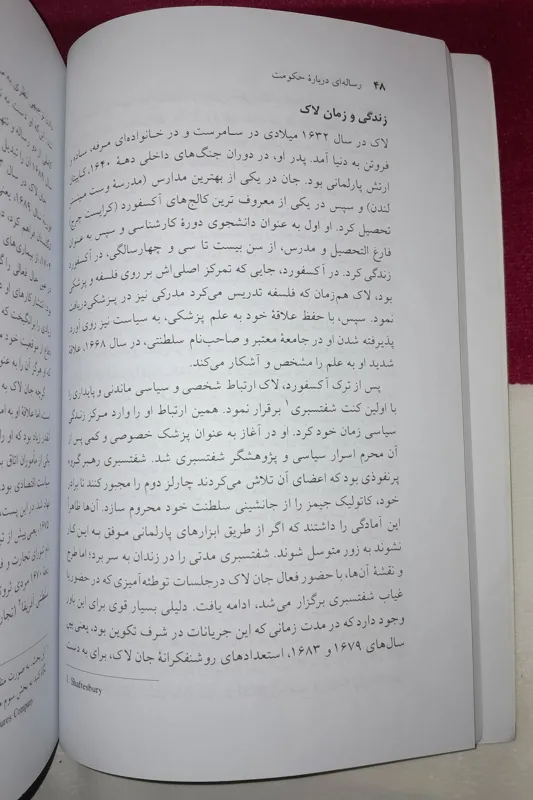 ۴۸ رساله‌ای دربارهٔ حکومت
زندگی و زمان لاک
لاک در سال ۱۶۳۲ میلادی در سامرست و در خانواده‌ای مرفه، ساده و
فروتن به دنیا آمد. پدر او، در دوران جنگ‌های داخلی دههٔ ۱۶۴۰، کاپیتان
ارتش پارلمانی بود. جان در یکی از بهترین مدارس (مدرسهٔ وست مینستر
لندن) و سپس در یکی از معروف ترین کالج‌های آکسفورد (کرایست چرچ)
تحصیل کرد. او اول به عنوان دانشجوی دورهٔ کارشناسی و سپس به عنوان
فارغ التحصیل و مدرس، از سن بیست تا سی و چهارسالگی، در آکسفورد
زندگی کرد. در آکسفورد، جایی که تمرکز اصلی‌اش بر روی فلسفه و پزشکی
بود، لاک هم‌زمان که فلسفه تدریس می‌کرد مدرکی نیز در پزشکی دریافت
نمود. سپس، با حفظ علاقهٔ خود به علم پزشکی، به سیاست نیز روی آورد.
پذیرفته شدن او در جامعهٔ معتبر و صاحب‌نام سلطنتی، در سال ۱۶۶۸، علاقهٔ
شدید او به علم را مشخص و آشکار می‌کند.
پس از ترک آکسفورد، لاک ارتباط شخصی و سیاسی ماندنی و پایداری را
با اولین کنت شفتسبری۱ برقرار نمود. همین ارتباط او را وارد مرکز زندگی
سیاسی زمان خود کرد. او در آغاز به عنوان پزشک خصوصی و کمی پس از
آن محرم اسرار سیاسی و پژوهشگر شفتسبری شد. شفتسبری رهبر گروه
پرنفوذی بود که اعضای آن تلاش می‌کردند چارلز دوم را مجبور کنند تا برادر
خود، کاتولیک جیمز را از جانشینی سلطنت خود محروم سازد. آن‌ها ظاهراً
این آمادگی را داشتند که اگر از طریق ابزارهای پارلمانی موفق به این کار
نشوند به زور متوسل شوند. شفتسبری مدتی را در زندان به سر برد؛ اما طرح
و نقشهٔ آن‌ها، با حضور فعال جان لاک درجلسات توطئه‌آمیزی که در حضور یا
غیاب شفتسبری برگزار می‌شد، ادامه یافت. دلیلی بسیار قوی برای این باور
وجود دارد که در مدت زمانی که این جریانات در شرف تکوین بود، یعنی بین
سال‌های ۱۶۷۹ و ۱۶۸۳، استعدادهای روشنفکرانهٔ جان لاک، برای به دست
1. Shaftesbury